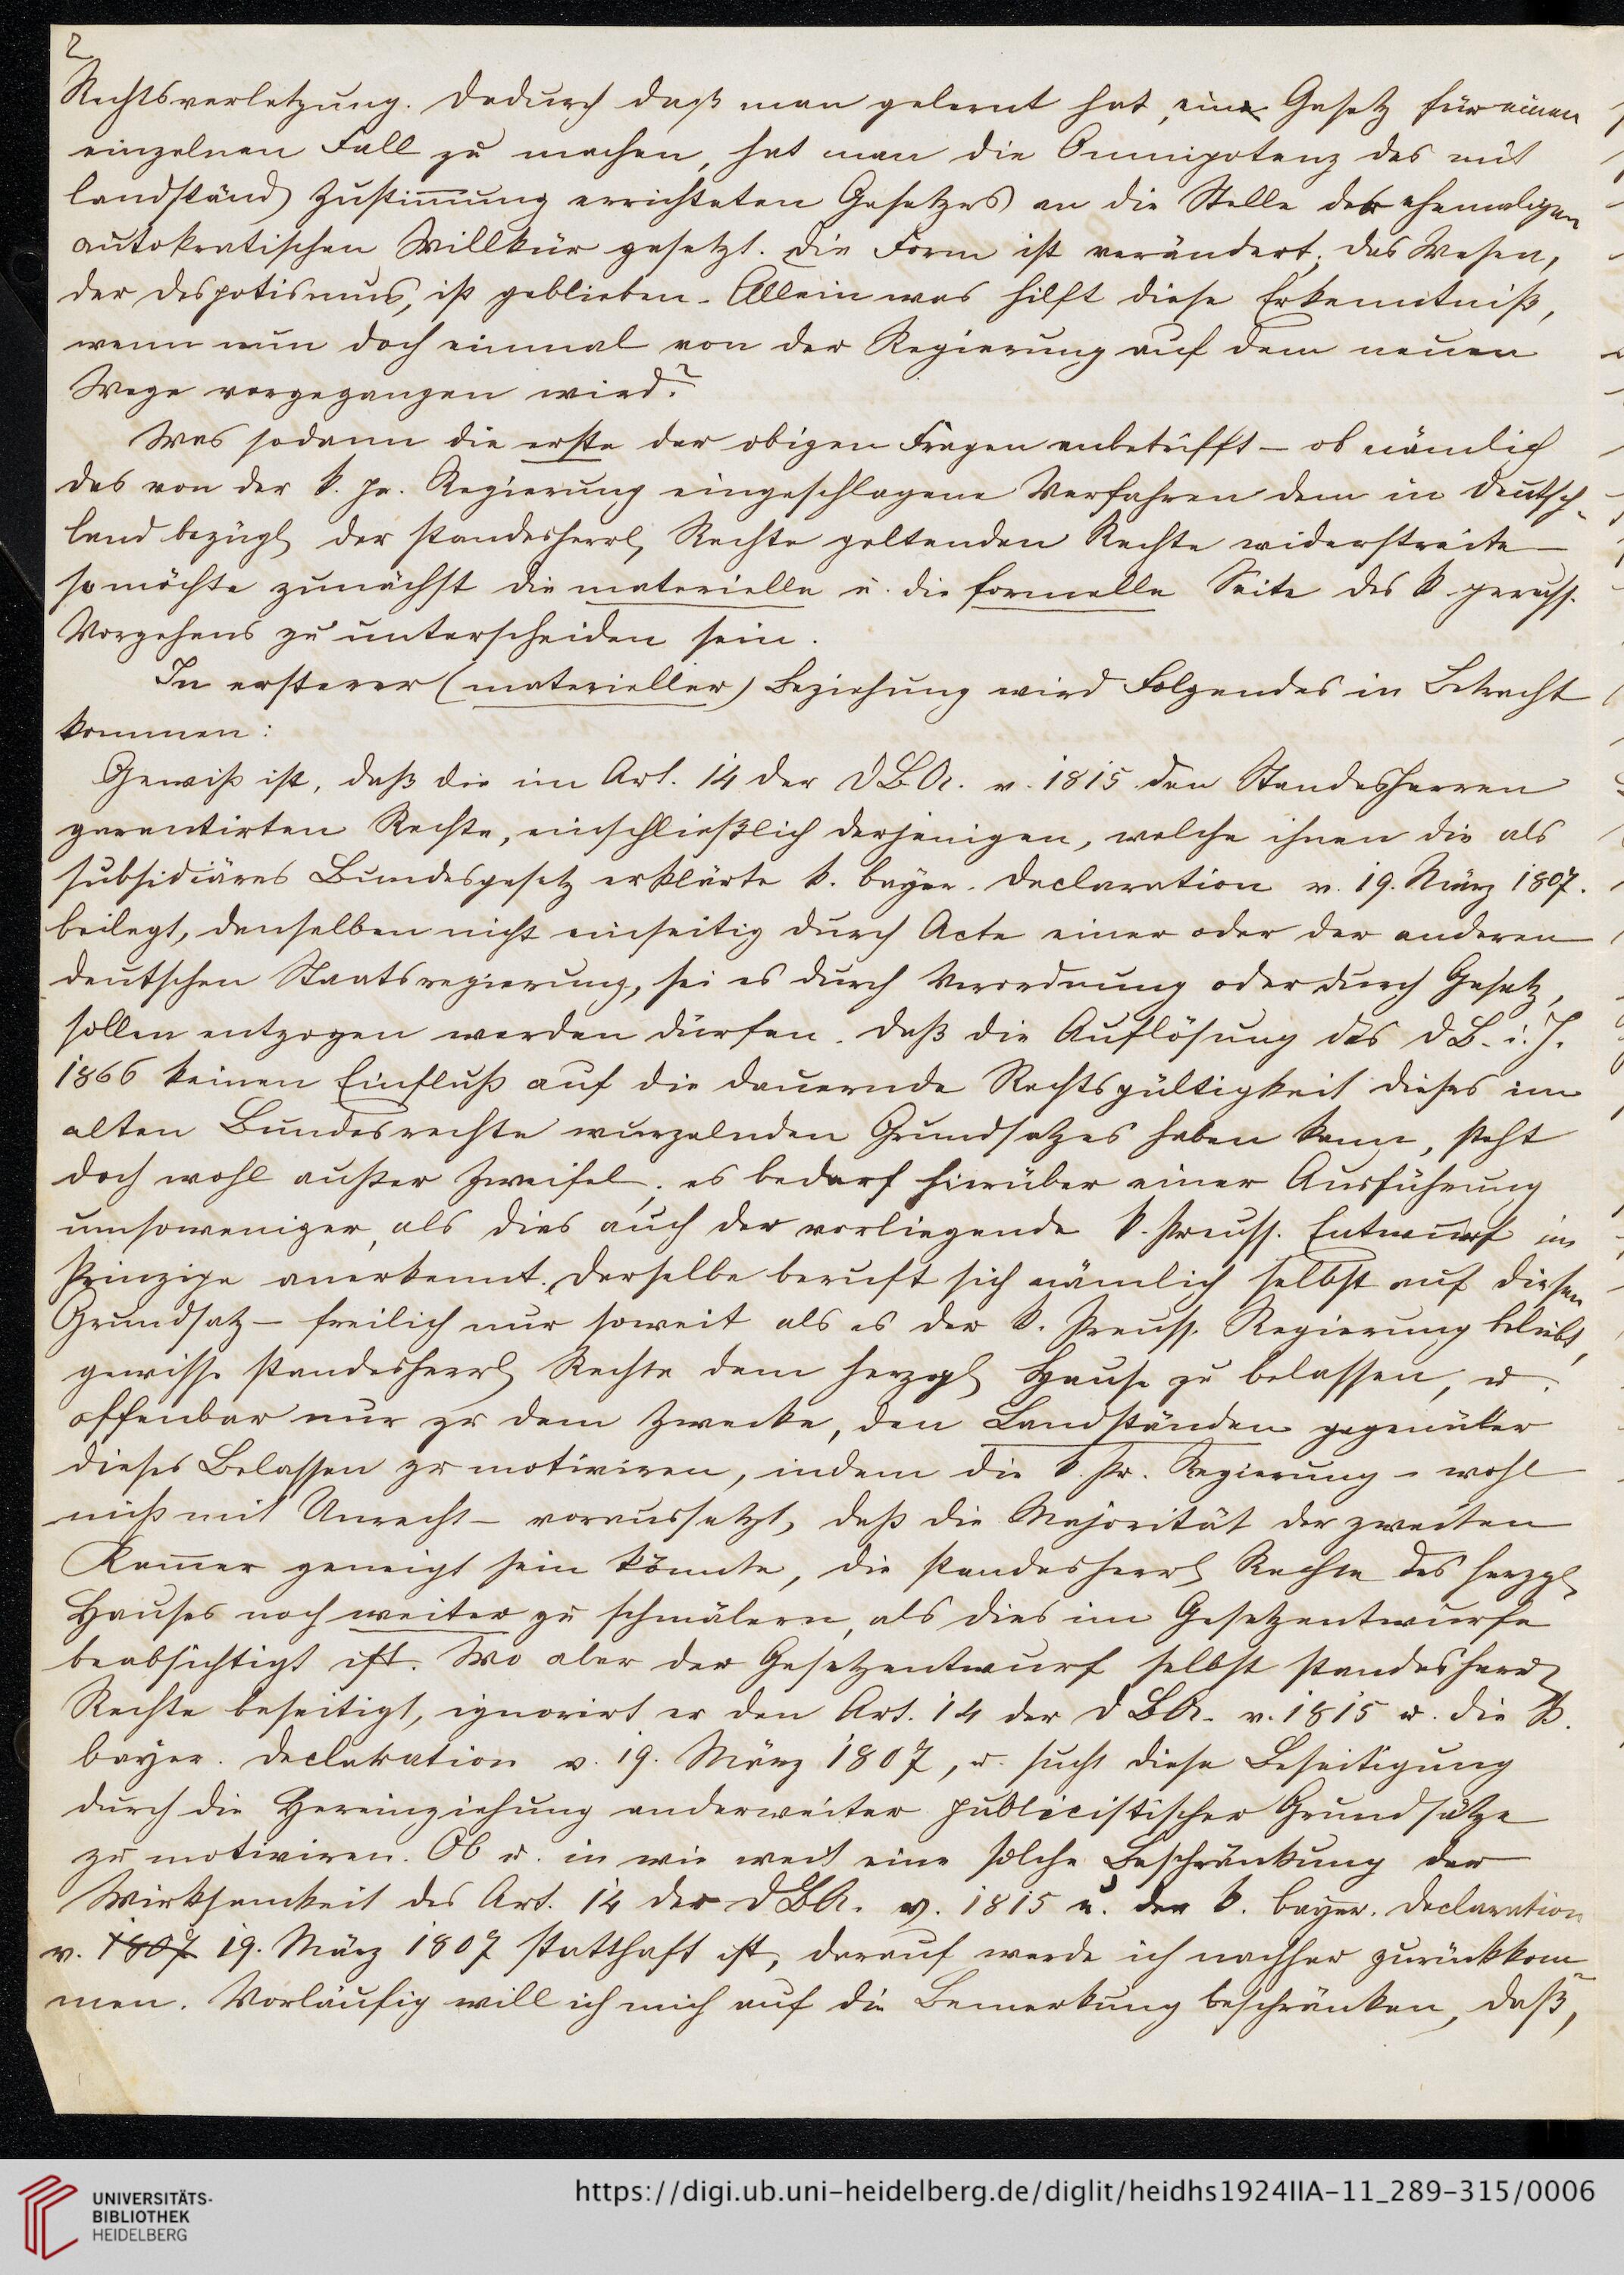 2
Rechtsverletzung. Dadurch daß man gelernt hat, ein Gesetz für einen
einzelnen Fall zu machen, hat man die Omnipotenz des mit
landständ. Zustim̄ung errichteten Gesetzes an die Stelle der ehemaligen
autokratischen Willkür gesetzt. Die Form ist verändert, das Wesen,
der Despotismus, ist geblieben. Allein was hilft diese Erkenntniß,
wenn nun doch einmal von der Regierung auf dem neuen
Wege vorgegangen wird?
Was sodann die erste der obigen Fragen anbetrifft – ob nämlich
das von der k. pr. Regierung eingeschlagene Verfahren dem in Deutsch-
land bezügl. der standesherrl. Rechte geltenden Rechte widerstreite –
so möchte zunächst die materielle u. die formelle Seite des k. preuss.
Vorgehens zu unterscheiden sein.
In ersterer (materieller) Beziehung wird Folgendes in Betracht
kommen:
Gewiß ist, daß die im Art. 14 der DBA. v. 1815 den Standesherren
garantirten Rechte, einschließlich derjenigen, welche ihnen die als
subsidiäres Bundesgesetz erklärte k. bayer. Declaration v. 19. März 1807.
beilegt, denselben nicht einseitig durch Acte einer oder der anderen
deutschen Staatsregierung, sei es durch Verordnung oder durch Gesetz,
sollen entzogen werden dürfen. Daß die Auflösung des DB. i. J.
1866 keinen Einfluß auf die dauernde Rechtsgültigkeit dieses im
alten Bundesrechte wurzelnden Grundsatzes haben kann, steht
doch wohl außer Zweifel; es bedarf hierüber einer Ausführung
umsoweniger, als dies auch der vorliegende k. preuss. Entwurf im
Prinzipe anerkennt. Derselbe beruft sich nämlich selbst auf diesen
Grundsatz – freilich nur soweit als es der k. Preuss. Regierung beliebt,
gewisse standesherrl. Rechte dem herzogl. Hause zu belassen, u.
offenbar nur zu dem Zwecke, den Landständen gegenüber
dieses Belassen zu motiviren, indem die k. pr. Regierung – wohl
nicht mit Unrecht – voraussetzt, daß die Majorität der zweiten
Kam̄er geneigt sein könnte, die standesherrl. Rechte des herzogl.
Hauses noch weiter zu schmälern, als dies im Gesetzentwurfe
beabsichtigt ist. Wo aber der Gesetzentwurf selbst standesherrl.
Rechte beseitigt, ignorirt er den Art. 14 der DBA. v. 1815 u. die k.
bayer. Declaration v. 19. März 1807, u. sucht diese Beseitigung
durch die Hereinziehung anderweiter publicistischer Grundsätze
zu motiviren. Ob u. in wie weit eine solche Beschränkung der
Wirksamkeit des Art. 14 der DBA. v. 1815 u. der k. bayer. Declaration
v. 1807 19. März 1807 statthaft ist, darauf werde ich nachher zurückkom-
men. Vorläufig will ich mich auf die Bemerkung beschränken, daß,
UNIVERSITÄTS-
BIBLIOTHEK
HEIDELBERG
https://digi.ub.uni-heidelberg.de/diglit/heidhs1924IIA-11_289-315/0006